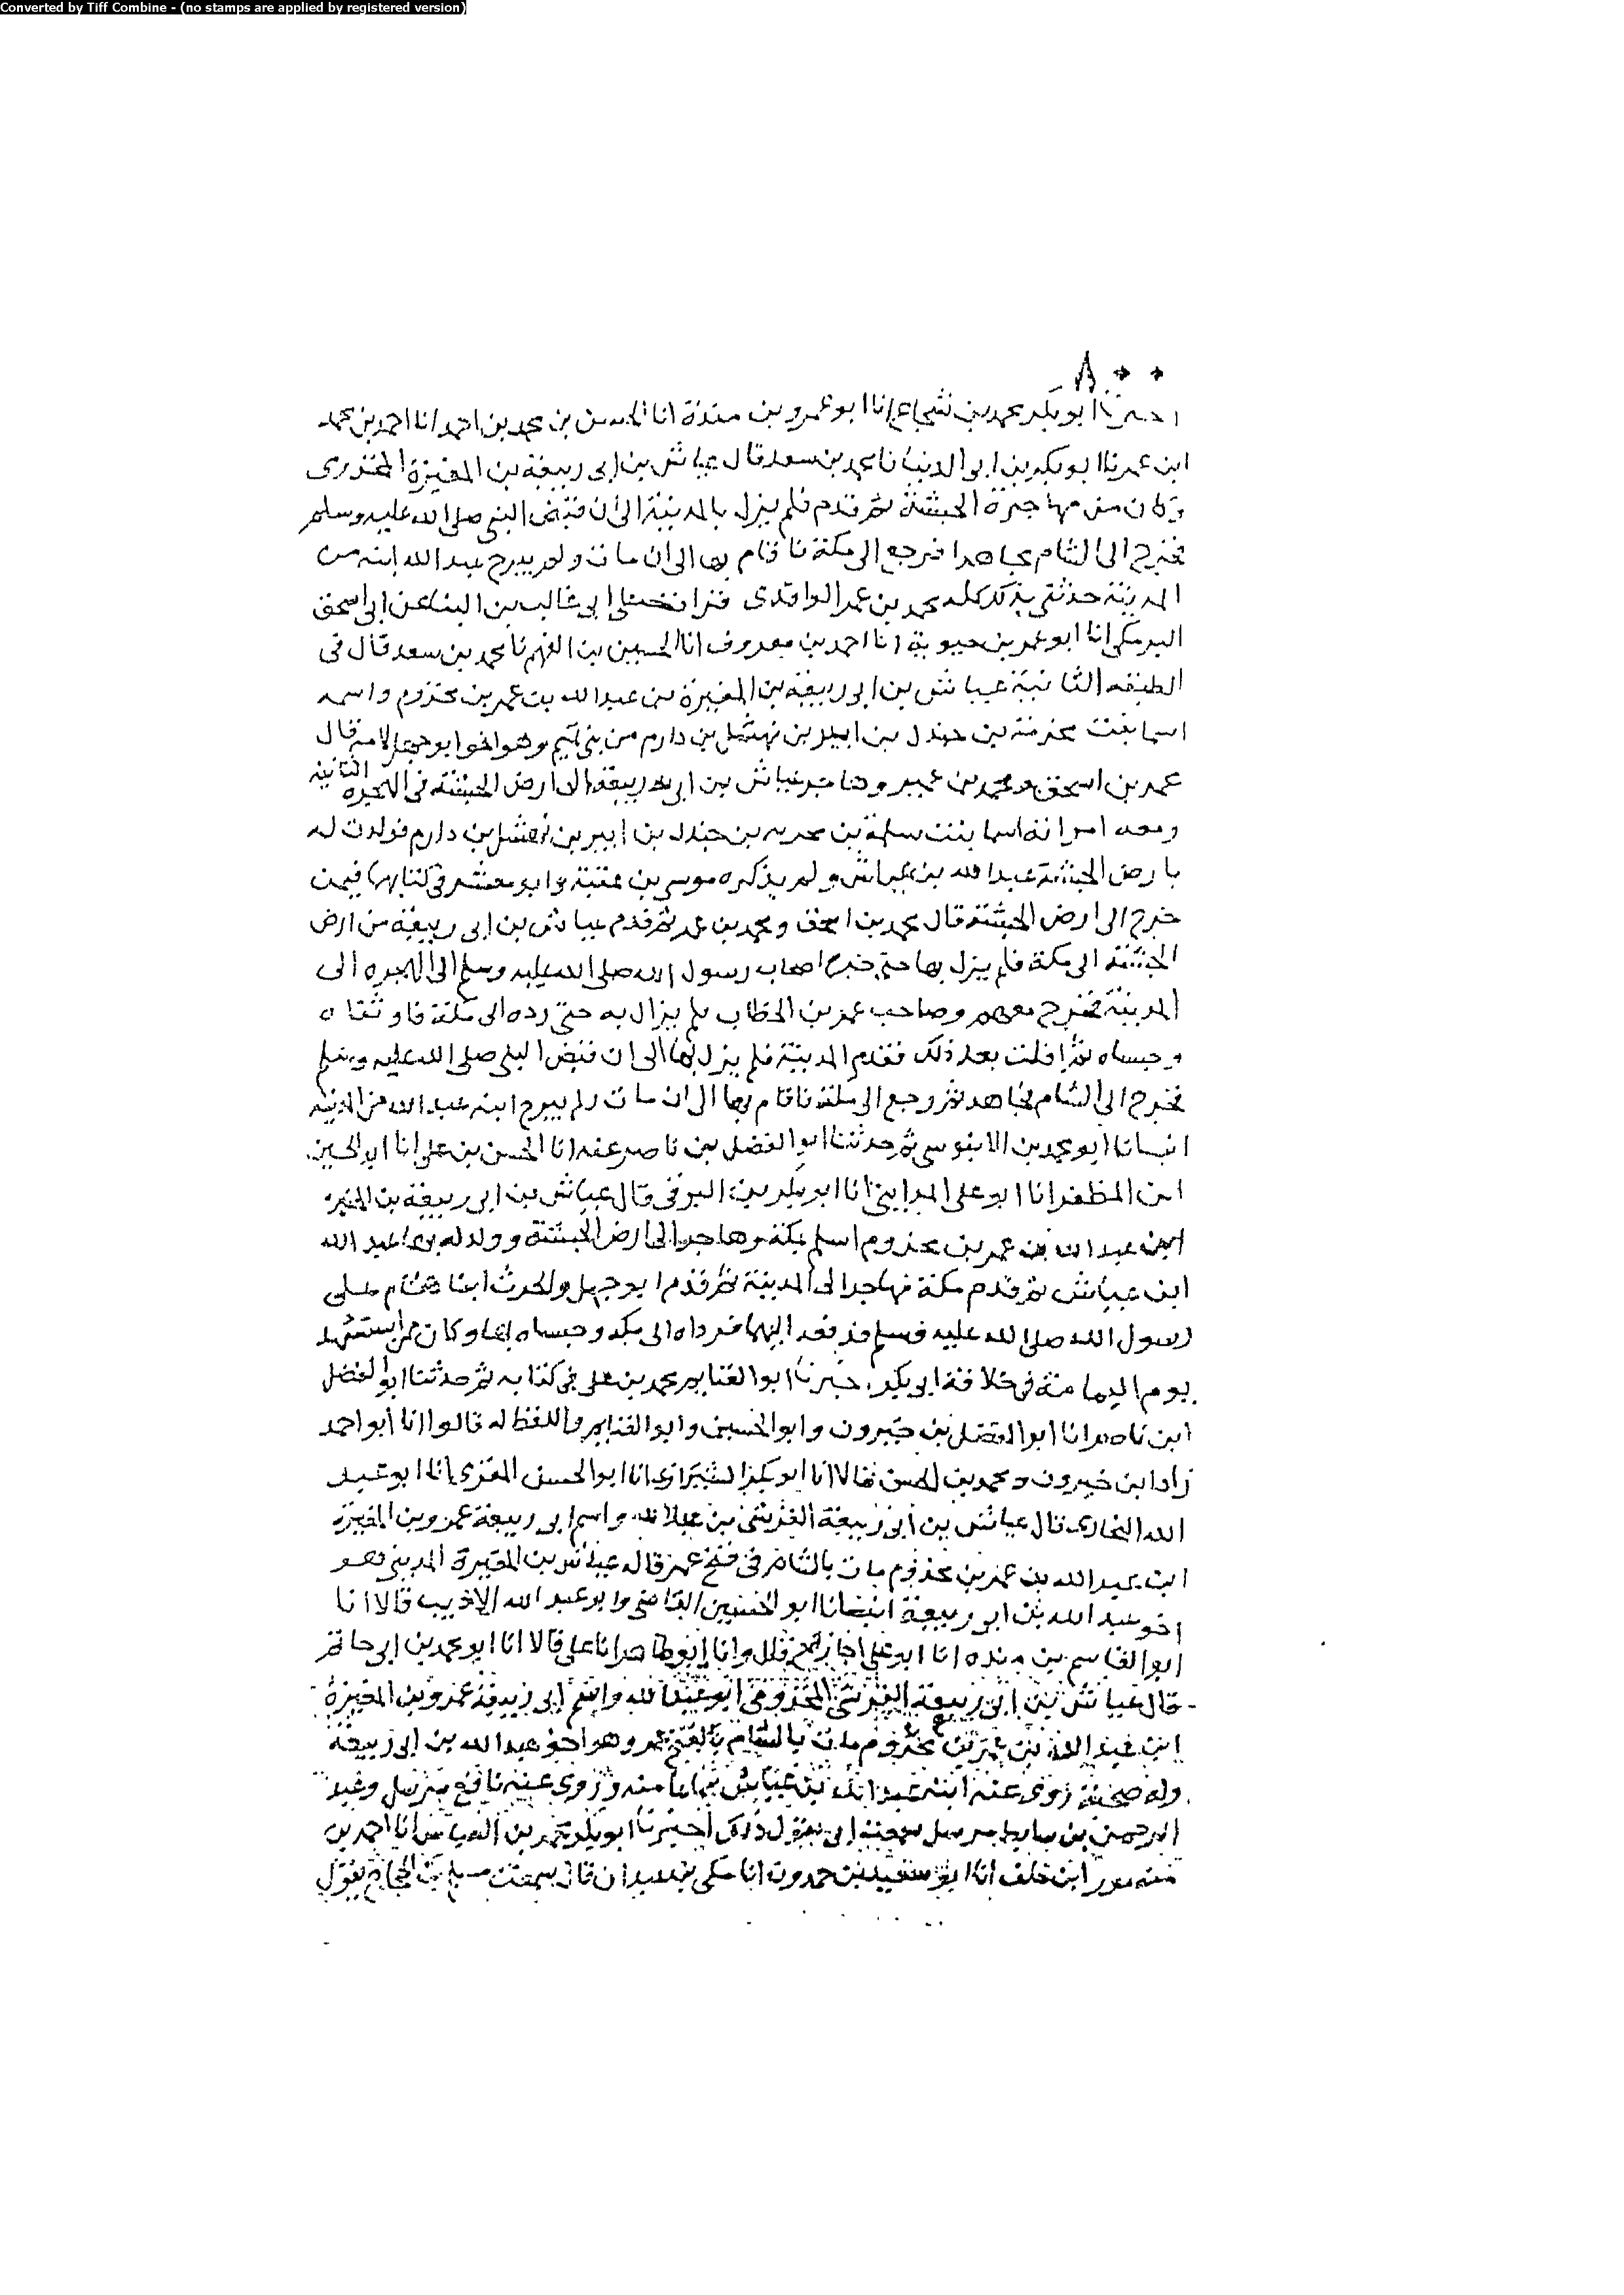 Converted by Tiff Combine - (no stamps are applied by registered version)
٨٠٠
اخبرنا ابو بكر محمد بن شجاع انا ابو عمرو بن مندة انا الحسن بن محمد بن احمد انا احمد بن محمد
ابن عمر نا ابو بكر بن ابى الدنيا نا محمد بن سعد قال عياش بن ابى ربيعة بن المغيرة المخزومى
وكان من مهاجرة الحبشة ثم قدم فلم يزل بالمدينة الى ان قبض النبى صلى الله عليه وسلم
فخرج الى الشام مجاهدا فرجع الى مكة فاقام بها الى ان مات ولم يبرح عبد الله ابنه من
المدينة حدثنى بذلك كله محمد بن عمر الواقدى قرات على ابى غالب بن البنا عن ابى اسحق
البرمكى انا ابو عمر بن حيوية انا احمد بن معروف انا الحسين بن الفهم نا محمد بن سعد قال فى
الطبقه الثانية عياش بن ابى ربيعة بن المغيرة بن عبد الله بن عمر بن مخزوم واسمه
اسما بنت مخرمة بن جندل بن ابير بن نهشل بن دارم من بنى تميم وهو اخو ابو جهل لامه قال
محمد بن اسحق ومحمد بن عمر وهاجر عياش بن ابى ربيعة الى ارض الحبشة فى الهجره الثانية
ومعه امراته اسما بنت سلمة بن مخربه بن جندل بن ابير بن نهشل بن دارم فولدت له
بارض الحبشة عبد الله بن عياش ولم يذكره موسى بن عقبة وابو معشر فى كتابهما فيمن
خرج الى ارض الحبشة قال محمد بن اسحق ومحمد بن عمر ثم قدم عياش بن ابى ربيعة من ارض
الحبشة الى مكة فلم يزل بها حتى خرج اصحاب رسول الله صلى الله عليه وسلم الى الهجره الى
المدينة فخرج معهم وصاحب عمر بن الخطاب فلم يزال به حتى رده الى مكة فاوثقاه
وحبساه ثم افلت بعد ذلك فقدم المدينة فلم يزل بها الى ان قبض النبى صلى الله عليه وسلم
فخرج الى الشام فجاهد ثم رجع الى مكة فاقام بها الى ان مات ولم يبرح ابنه عبد الله من المدينة
انبانا ابو محمد بن الابنوسى ثم حدثنا ابو الفضل بن ناصر عنه انا الحسن بن على انا ابو الحسين
ابن المظفر انا ابو على المداينى انا ابو بكر بن البرقى قال عياش بن ابى ربيعة بن المغيرة
ابن عبد الله بن عمر بن مخزوم اسلم بمكة وهاجر الى ارض الحبشة وولد له بها عبد الله
ابن عياش ثم قدم مكة فهاجر الى المدينة ثم قدم ابو جهل والحرث ابنا هشام على
رسول الله صلى الله عليه وسلم فدفعه اليهما فرداه الى مكه وحبساه بها وكان ممن استشهد
يوم اليمامة فى خلافة ابى بكر اخبرنا ابو الغنايم محمد بن على فى كتابه ثم حدثنا ابو الفضل
ابن ناصر انا ابو الفضل بن خيرون وابو الحسين وابو الغنايم واللفظ له قالوا انا ابو احمد
زاد ابن خيرون ومحمد بن الحسن قالا انا ابو بكر الشيرازى انا ابو الحسن المقرى انا ابو عبد
الله البخارى قال عياش بن ابى ربيعة القرشى بن عبد الله واسم ابى ربيعة عمرو بن المغيرة
ابن عبد الله بن عمر بن مخزوم مات بالشام فى فتح عمر قال عياش بن المغيرة المدينى هو
اخو عبد الله بن ابو ربيعة انبانا ابو الحسين القاضى وابو عبد الله الاديب قالا انا
ابو القاسم بن منده انا ابو على اجازة قال وانا ابو طاهر انا على قالا انا ابو محمد بن ابى حاتم
قال عياش بن ابى ربيعة القرشى المخزومى ابو عبد الله واسم ابى ربيعة عمرو بن المغيرة
ابن عبد الله بن عمر بن مخزوم مات بالشام فتح عمر وهو اخو عبد الله بن ابى ربيعة
وله صحبة روى عنه ابنه عبد الله بن عياش سماعا منه وروى عنه نافع مرسل وعبد
الرحمن بن سابط مرسل سمعت ابى يقول ذلك اخبرنا ابو بكر محمد بن العباس انا احمد بن
منصور ابن خلف انا ابو سعيد بن حمدون انا مكى بن عبدان قال سمعت مسلم بن الحجاج يقول